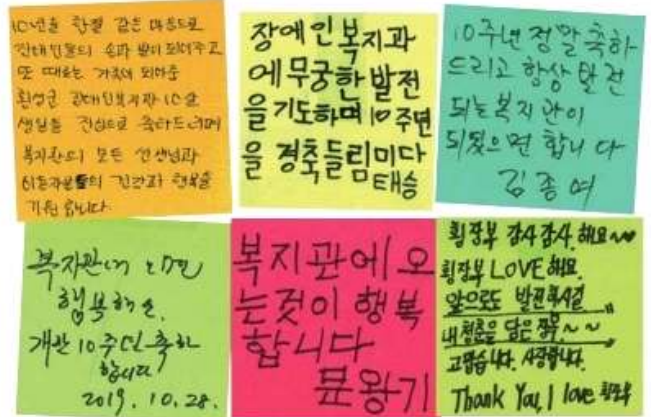 10년을 한결 같은 마음으로
장애인들의 손과 발이 되어주고
또 때로는 가족이 되어준
횡성군 장애인복지관 10살
생일을 진심으로 축하드리며
복지관의 모든 선생님과
이용자분들의 건강과 행복을
기원합니다.
장애인복지과
에무궁한 발전
을기도하며 10주년
을 경축들림미다
태승
10주년 정말 축하
드리고 항상 발전
되는복지관이
되됬으면 합니다
김종여
복지관에 오면
행복해요.
개관 10주년 축하
합니다
2019. 10. 28.
복지관에 오
는것이 행복
합니다
문왕기
횡장부 감사감사.해요~
횡장부 LOVE 해요.
앞으로도 발전하시길
내 청춘을 담은 ~~
고맙습니다. 사랑합니다.
Thank You, I love 횡장부